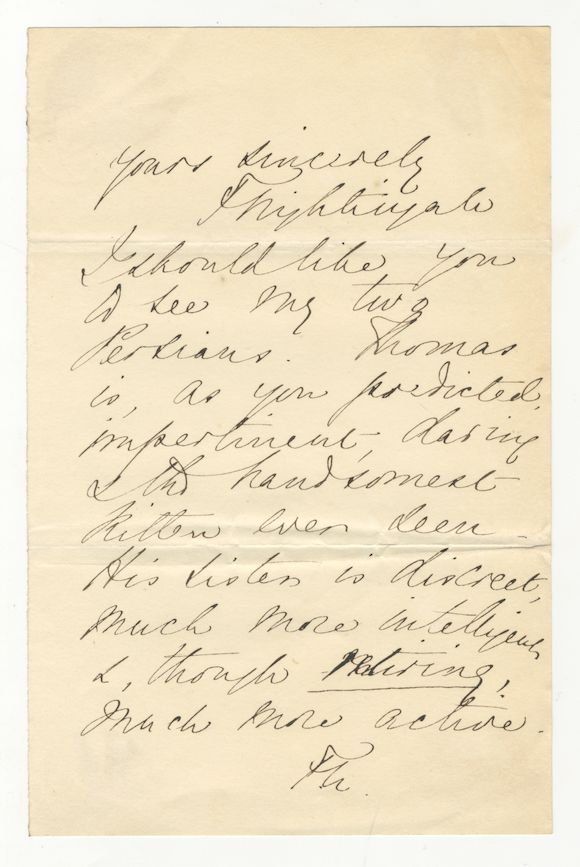 yours sincerely
F Nightingale
I should like you
to see my two
Persians. Thomas
is, as you predicted,
impertinent, daring
& the handsomest
kitten ever seen -
His sister is discreet,
much more intelligent
&, though retiring,
much more active.